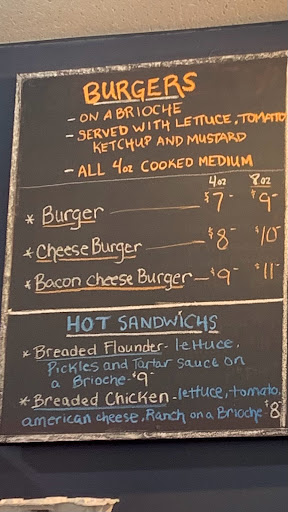 BURGERS
- ON A BRIOCHE
- SERVED WITH LETTUCE, TOMATO
KETCHUP AND MUSTARD
- ALL 4oz COOKED MEDIUM
4oz 8oz
* Burger — $7- $9-
* Cheese Burger — $8- $10-
* Bacon cheese Burger — $9- $11-
HOT SANDWICHS
* Breaded Flounder - lettuce,
Pickles and Tartar sauce on
a Brioche - $9
* Breaded Chicken - lettuce, tomato,
american cheese, Ranch on a Brioche - $8